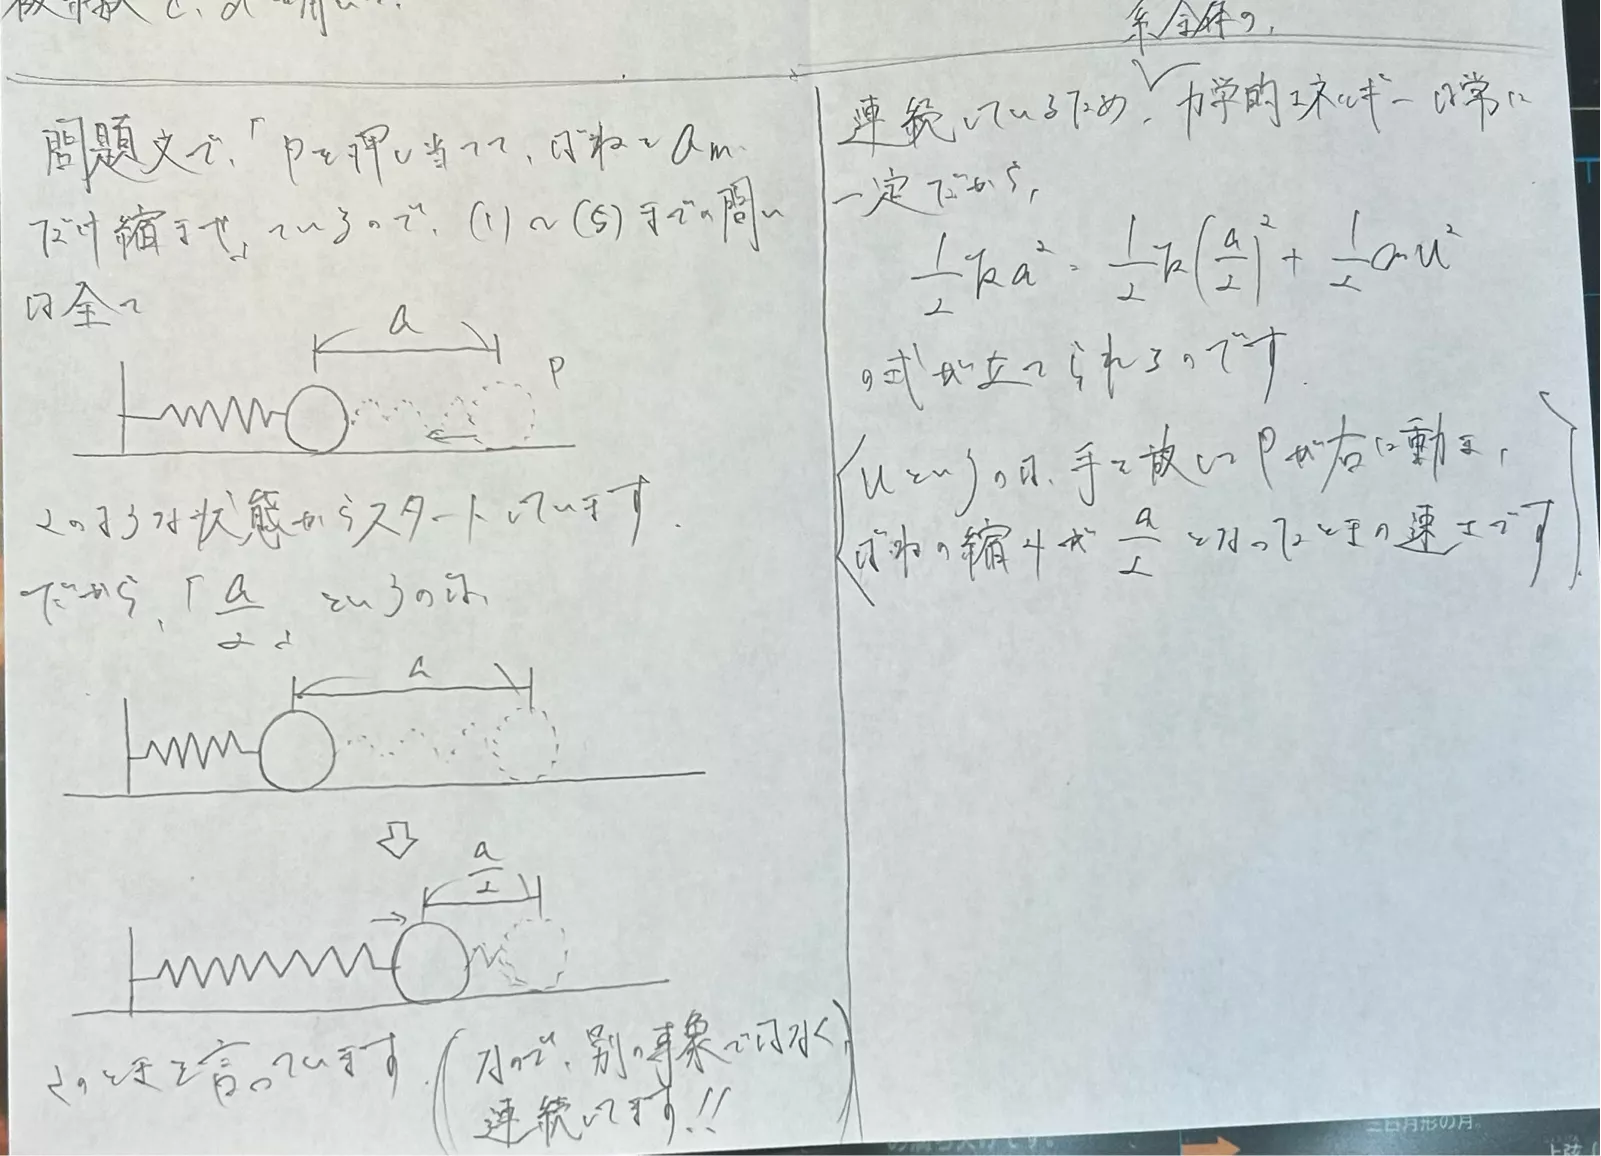 問題文で、「Pを押し当てて、ばねをam
だけ縮ませ」ているので、(1)〜(5)までの問い
は全て
a
P
このような状態からスタートしています.
だから、「a/2」というのは、
a
a/2
このときを言っています.
(なので、別の事象ではなく、
連続してます!!)
系全体の,
連続しているため、力学的エネルギーは常に
一定だから,
1/2 ka² = 1/2 k(a/2)² + 1/2 mu²
の式が立てられるのです.
(uというのは、手を放してPが右に動き,
ばねの縮みが a/2 となったときの速さです)
三日月形の月。